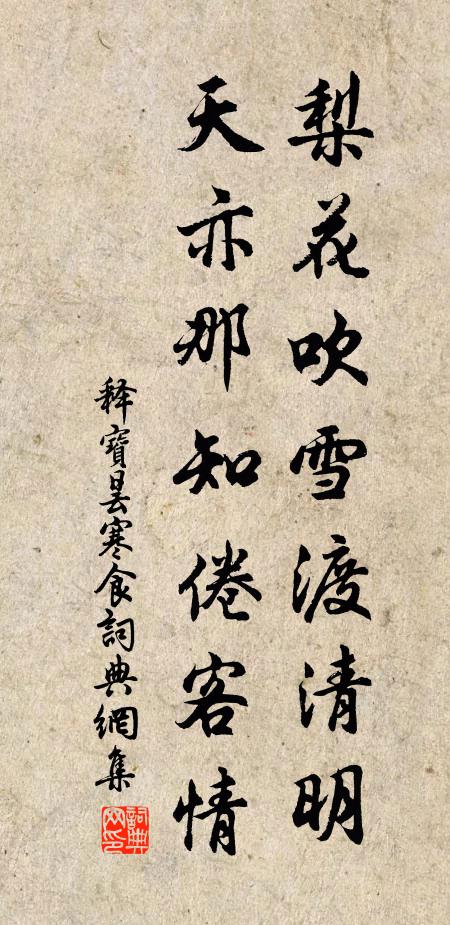 梨花吹雪渡清明
天亦那知倦客情
释寶昙寒食詞典網集
詞典网印